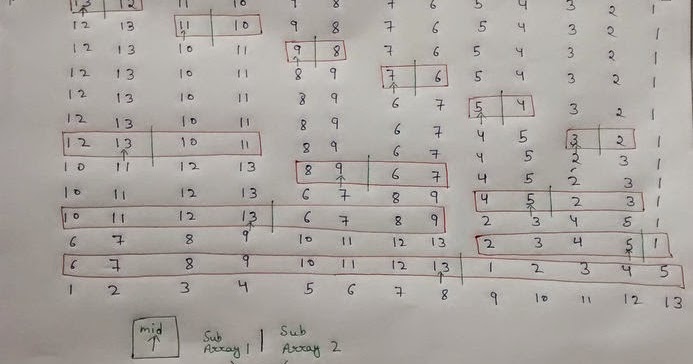 13 12 11 10 9 8 7 6 5 4 3 2 1
12 13 11 10 9 8 7 6 5 4 3 2 1
12 13 10 11 9 8 7 6 5 4 3 2 1
12 13 10 11 8 9 7 6 5 4 3 2 1
12 13 10 11 8 9 6 7 5 4 3 2 1
12 13 10 11 8 9 6 7 4 5 3 2 1
12 13 10 11 8 9 6 7 4 5 2 3 1
10 11 12 13 8 9 6 7 4 5 2 3 1
10 11 12 13 6 7 8 9 4 5 2 3 1
10 11 12 13 6 7 8 9 2 3 4 5 1
6 7 8 9 10 11 12 13 2 3 4 5 1
6 7 8 9 10 11 12 13 1 2 3 4 5
1 2 3 4 5 6 7 8 9 10 11 12 13
mid
Sub Array 1
Sub Array 2